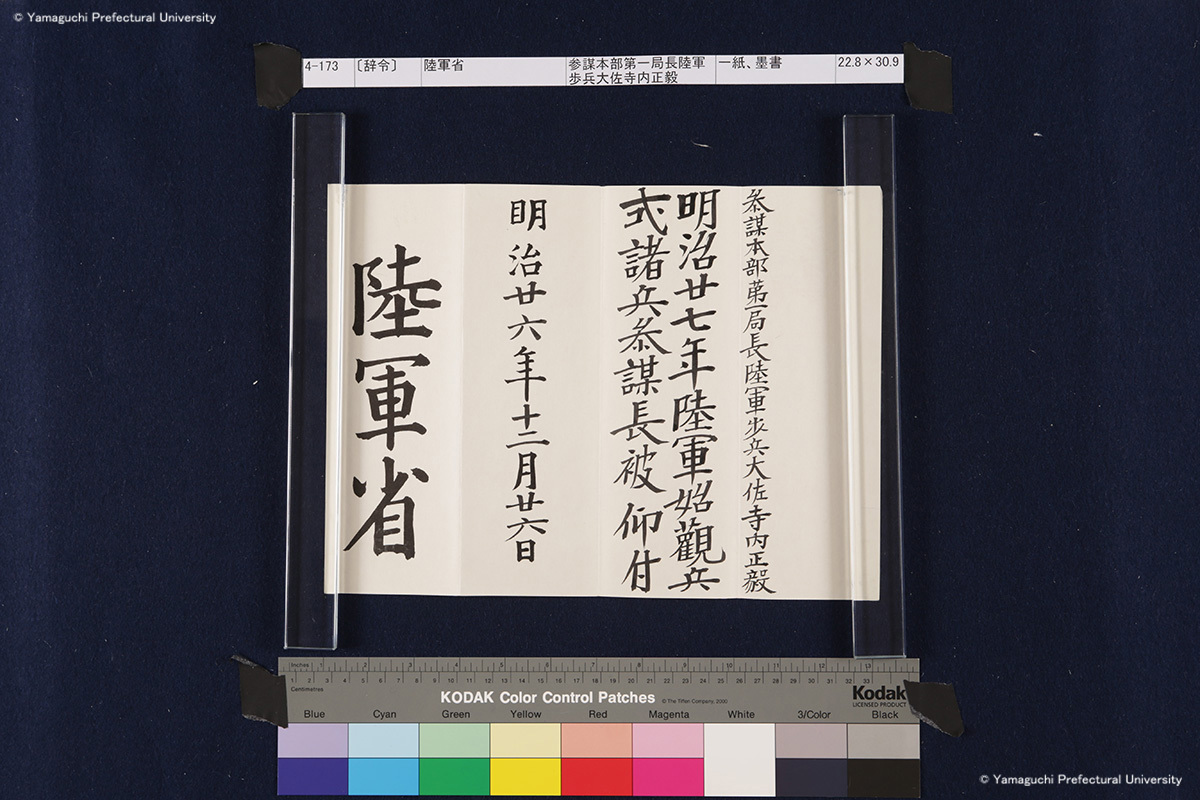 © Yamaguchi Prefectural University
4-173 〔辞令〕 陸軍省 参謀本部第一局長陸軍歩兵大佐寺内正毅 一紙、墨書 22.8×30.9
参謀本部第一局長陸軍歩兵大佐寺内正毅
明治廿七年陸軍始觀兵
式諸兵参謀長被仰付
明治廿六年十二月廿六日
陸軍省
Inches 1 2 3 4 5 6 7 8 9 10 11 12 13
Centimetres 1 2 3 4 5 6 7 8 9 10 11 12 13 14 15 16 17 18 19 20 21 22 23 24 25 26 27 28 29 30 31 32 33
KODAK Color Control Patches © The Tiffen Company, 2000 Kodak
LICENSED PRODUCT
Blue Cyan Green Yellow Red Magenta White 3/Color Black
© Yamaguchi Prefectural University